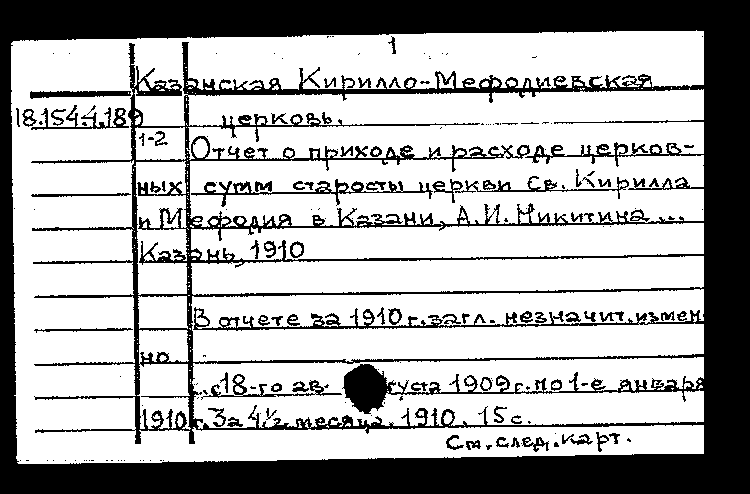 1
Казанская Кирилло-Мефодиевская
18.154.4.189 церковь.
1-2
Отчет о приходе и расходе церков-
ных сумм старосты церкви Св. Кирилла
и Мефодия в Казани, А.И. Никитина...
Казань, 1910
В отчете за 1910 г. загл. незначит. измен
но
...с 18-го августа 1909 г. по 1-е января
1910 г. За 4½ месяца. 1910. 15 с.
См. след. карт.